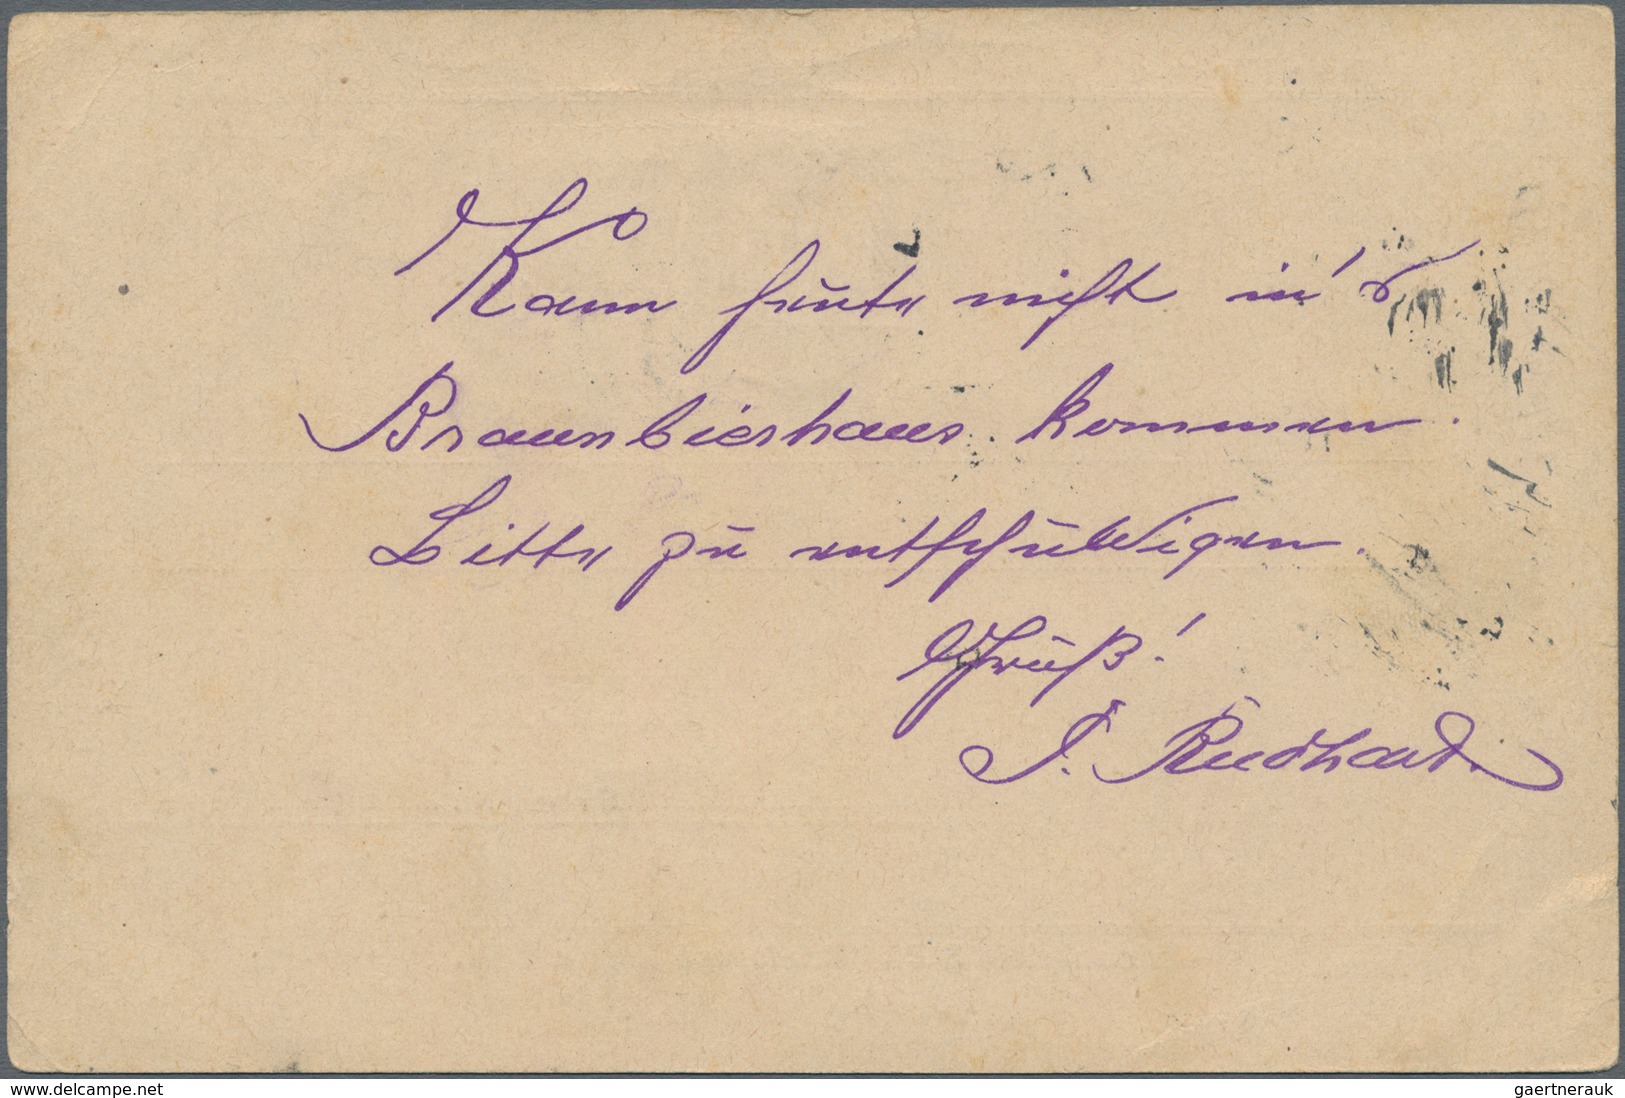 Kann heute nicht in's
Braunbierhaus kommen.
Bitte zu entschuldigen.
Gruß!
www.delcampe.net
gaertnerauk